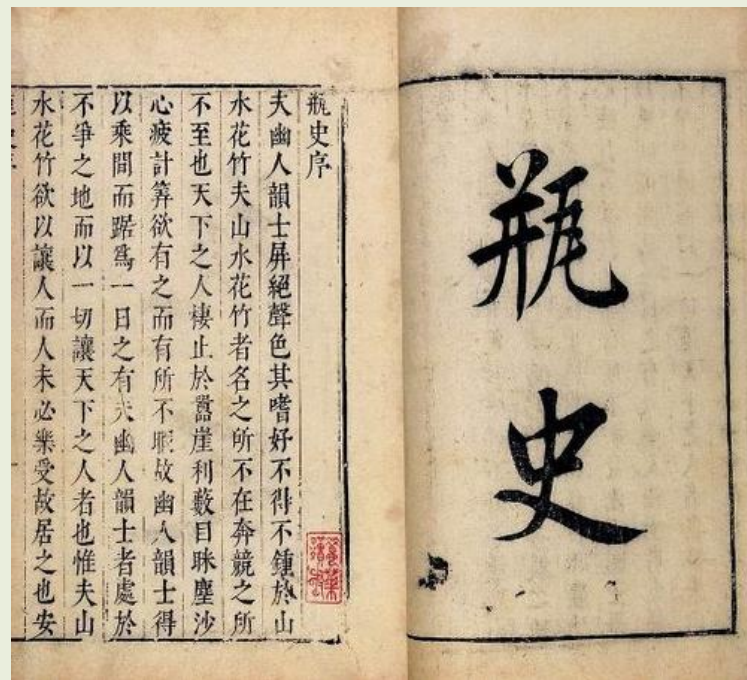 瓶史
瓶史序
夫幽人韻士屏絕聲色其嗜好不得不鍾於山
水花竹夫山水花竹者名之所不在奔競之所
不至也天下之人棲止於囂崖利藪目眯塵沙
心疲計筭欲有之而有所不暇故幽人韻士得
以乘間而踞爲一日之有夫幽人韻士者處於
不爭之地而以一切讓天下之人者也惟夫山
水花竹欲以讓人而人未必樂受故居之也安